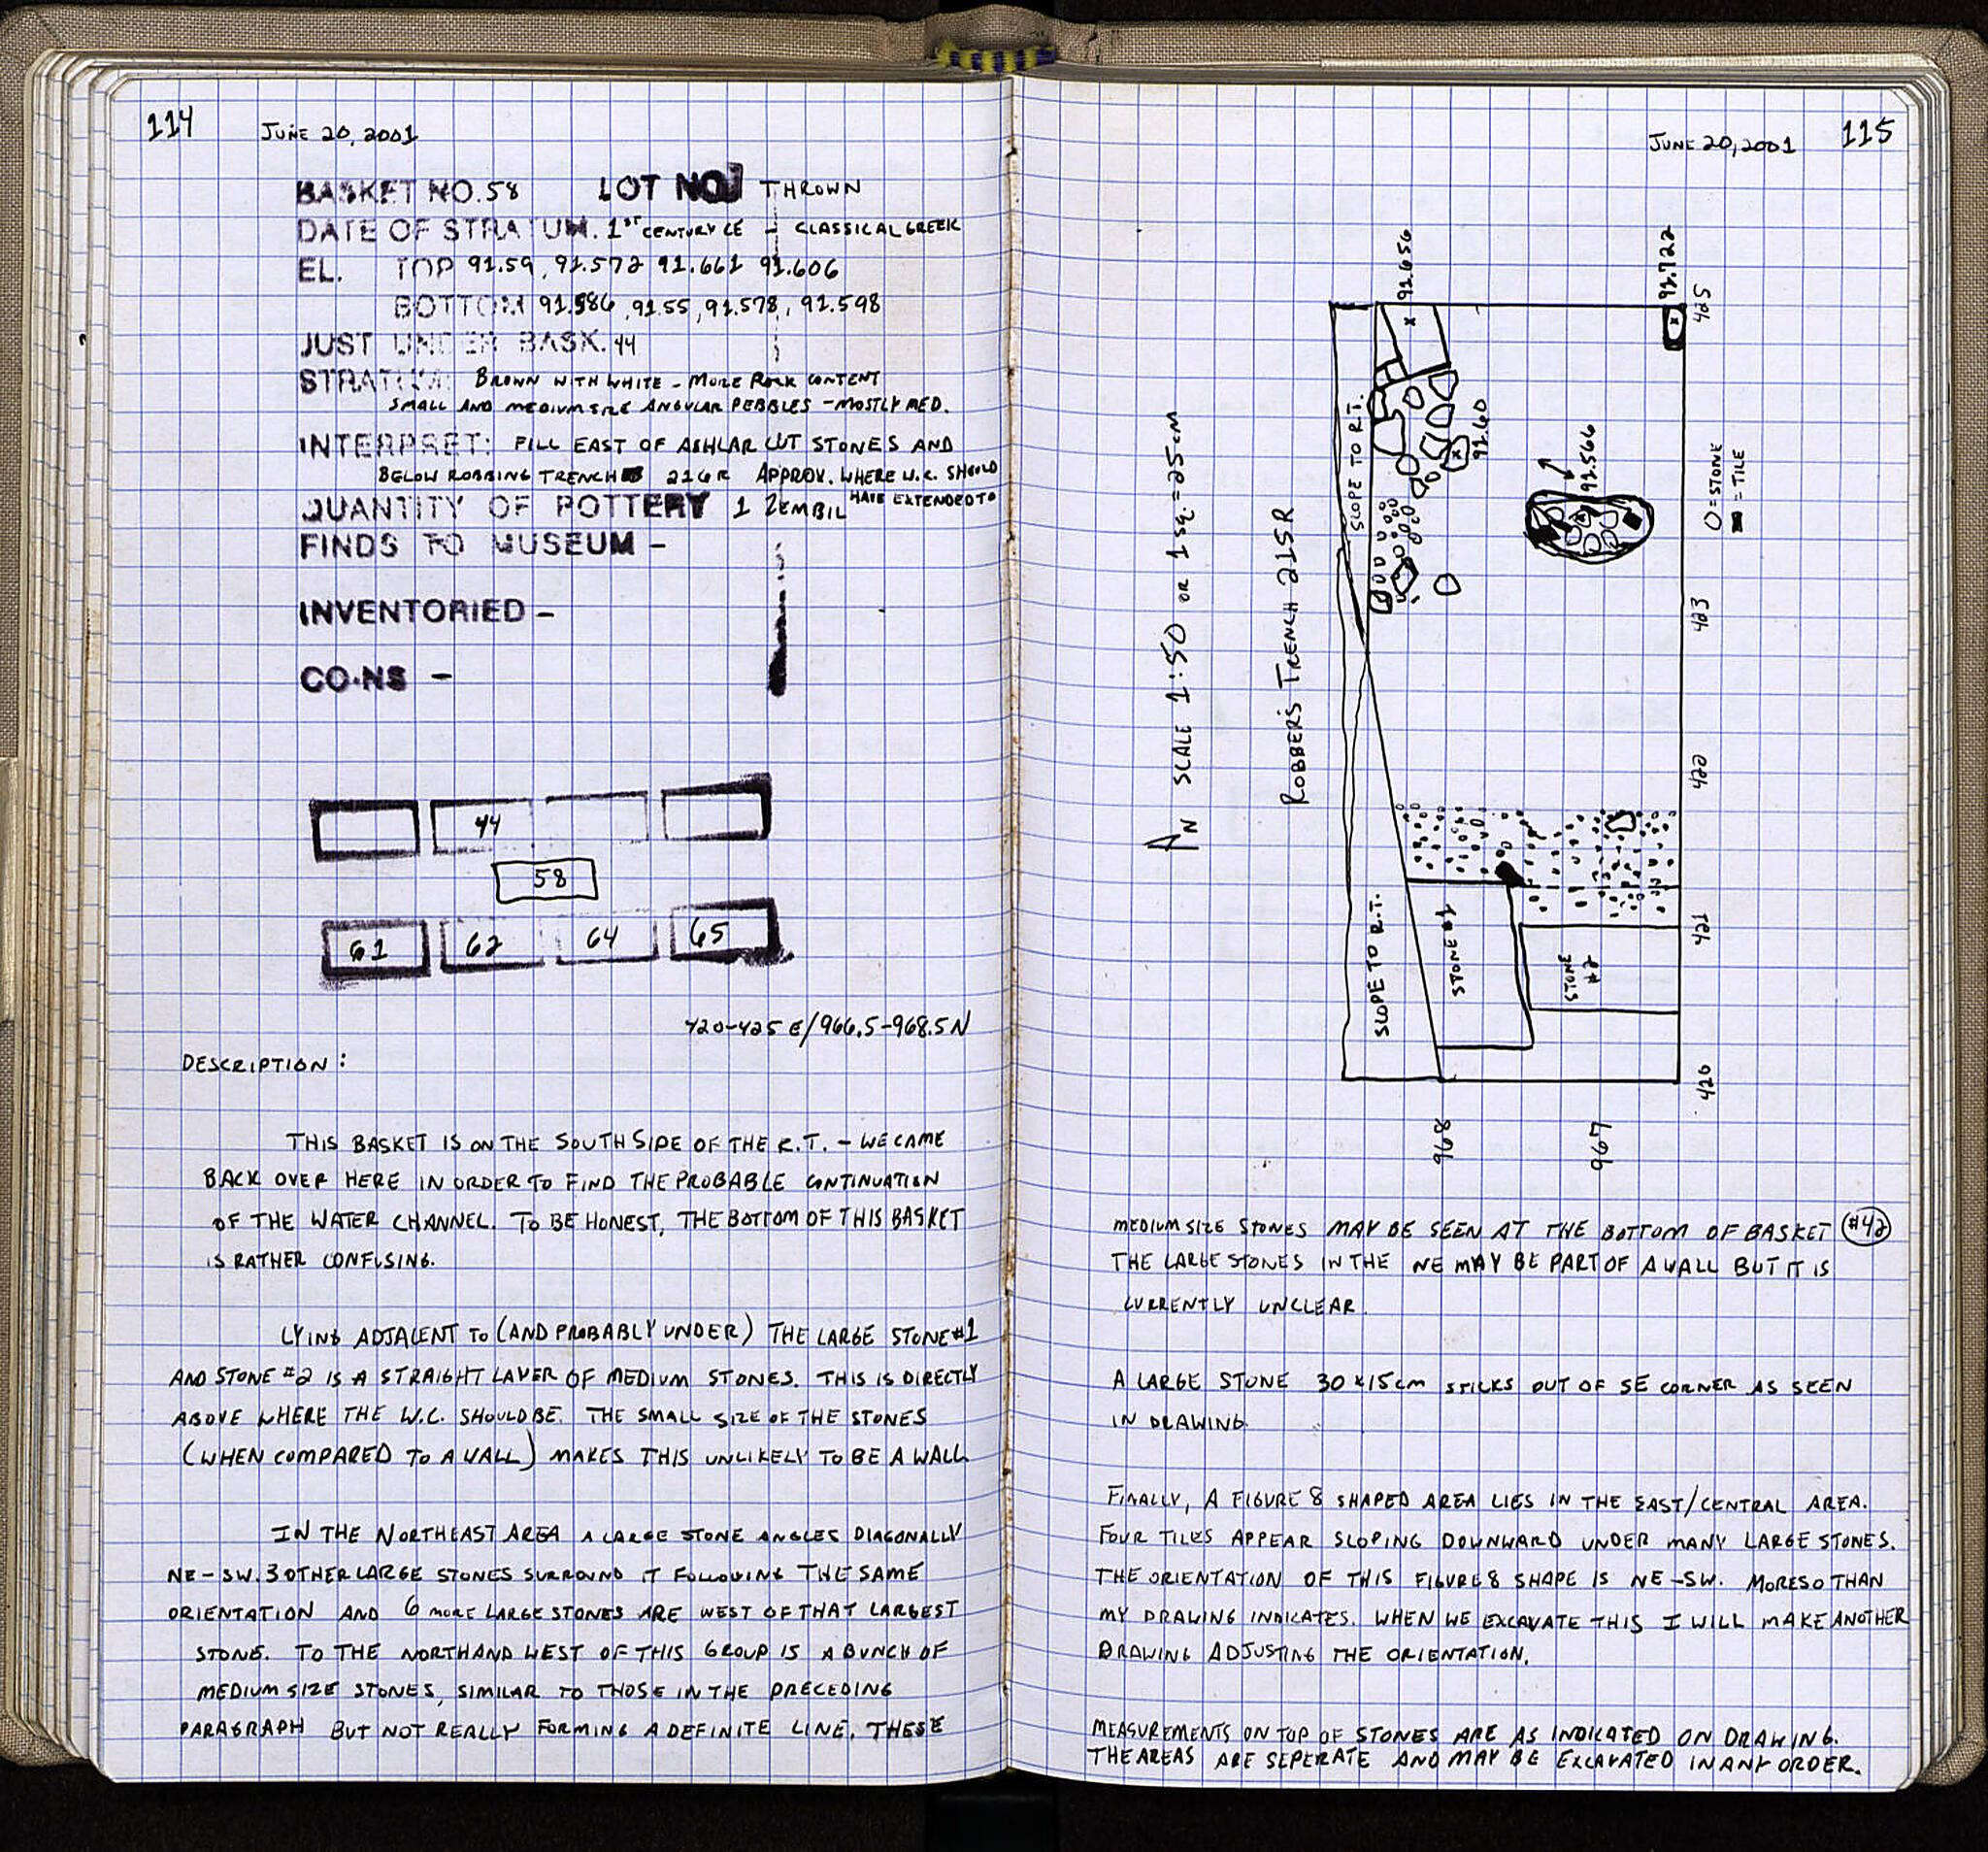 114
JUNE 20, 2001
BASKET NO. 58 LOT NO. THROWN
DATE OF STRATUM. 1ST CENTURY CE - CLASSICAL GREEK
EL. TOP 91.59, 91.572 91.661 91.606
BOTTOM 91.586, 91.55, 91.578, 91.598
JUST UNDER BASK. 44
STRATUM: BROWN WITH WHITE - MORE ROCK CONTENT
SMALL AND MEDIUM SIZE ANGULAR PEBBLES - MOSTLY MED.
INTERPRET: FILL EAST OF ASHLAR CUT STONES AND
BELOW ROBBING TRENCH 216R APPROX. WHERE W.C. SHOULD
HAVE EXTENDED TO
QUANTITY OF POTTERY 1 ZEMBIL
FINDS TO MUSEUM -
INVENTORIED -
COINS -
44
58
61 62 64 65
420-425 E/966.5-968.5 N
DESCRIPTION:
THIS BASKET IS ON THE SOUTH SIDE OF THE R.T. - WE CAME
BACK OVER HERE IN ORDER TO FIND THE PROBABLE CONTINUATION
OF THE WATER CHANNEL. TO BE HONEST, THE BOTTOM OF THIS BASKET
IS RATHER CONFUSING.
LYING ADJACENT TO (AND PROBABLY UNDER) THE LARGE STONE #1
AND STONE #2 IS A STRAIGHT LAYER OF MEDIUM STONES. THIS IS DIRECTLY
ABOVE WHERE THE W.C. SHOULD BE. THE SMALL SIZE OF THE STONES
(WHEN COMPARED TO A WALL) MAKES THIS UNLIKELY TO BE A WALL.
IN THE NORTHEAST AREA A LARGE STONE ANGLES DIAGONALLY
NE-SW. 3 OTHER LARGE STONES SURROUND IT FOLLOWING THE SAME
ORIENTATION AND 6 MORE LARGE STONES ARE WEST OF THAT LARGEST
STONE. TO THE NORTH AND WEST OF THIS GROUP IS A BUNCH OF
MEDIUM SIZE STONES, SIMILAR TO THOSE IN THE PRECEDING
PARAGRAPH BUT NOT REALLY FORMING A DEFINITE LINE. THESE
JUNE 20, 2001
115
N SCALE 1:50 OR 1 SQ. = 25 cm
ROBBERS TRENCH 215R
SLOPE TO R.T.
SLOPE TO R.T.
91.656
91.722
91.60
91.566
O = STONE
■ = TILE
STONE #1
STONE #2
425
423
422
421
420
968
967
MEDIUM SIZE STONES MAY BE SEEN AT THE BOTTOM OF BASKET #42
THE LARGE STONES IN THE NE MAY BE PART OF A WALL BUT IT IS
CURRENTLY UNCLEAR.
A LARGE STONE 30 x 15 cm STICKS OUT OF SE CORNER AS SEEN
IN DRAWING.
FINALLY, A FIGURE 8 SHAPED AREA LIES IN THE EAST/CENTRAL AREA.
FOUR TILES APPEAR SLOPING DOWNWARD UNDER MANY LARGE STONES.
THE ORIENTATION OF THIS FIGURE 8 SHAPE IS NE-SW. MORESO THAN
MY DRAWING INDICATES. WHEN WE EXCAVATE THIS I WILL MAKE ANOTHER
DRAWING ADJUSTING THE ORIENTATION.
MEASUREMENTS ON TOP OF STONES ARE AS INDICATED ON DRAWING.
THE AREAS ARE SEPERATE AND MAY BE EXCAVATED IN ANY ORDER.